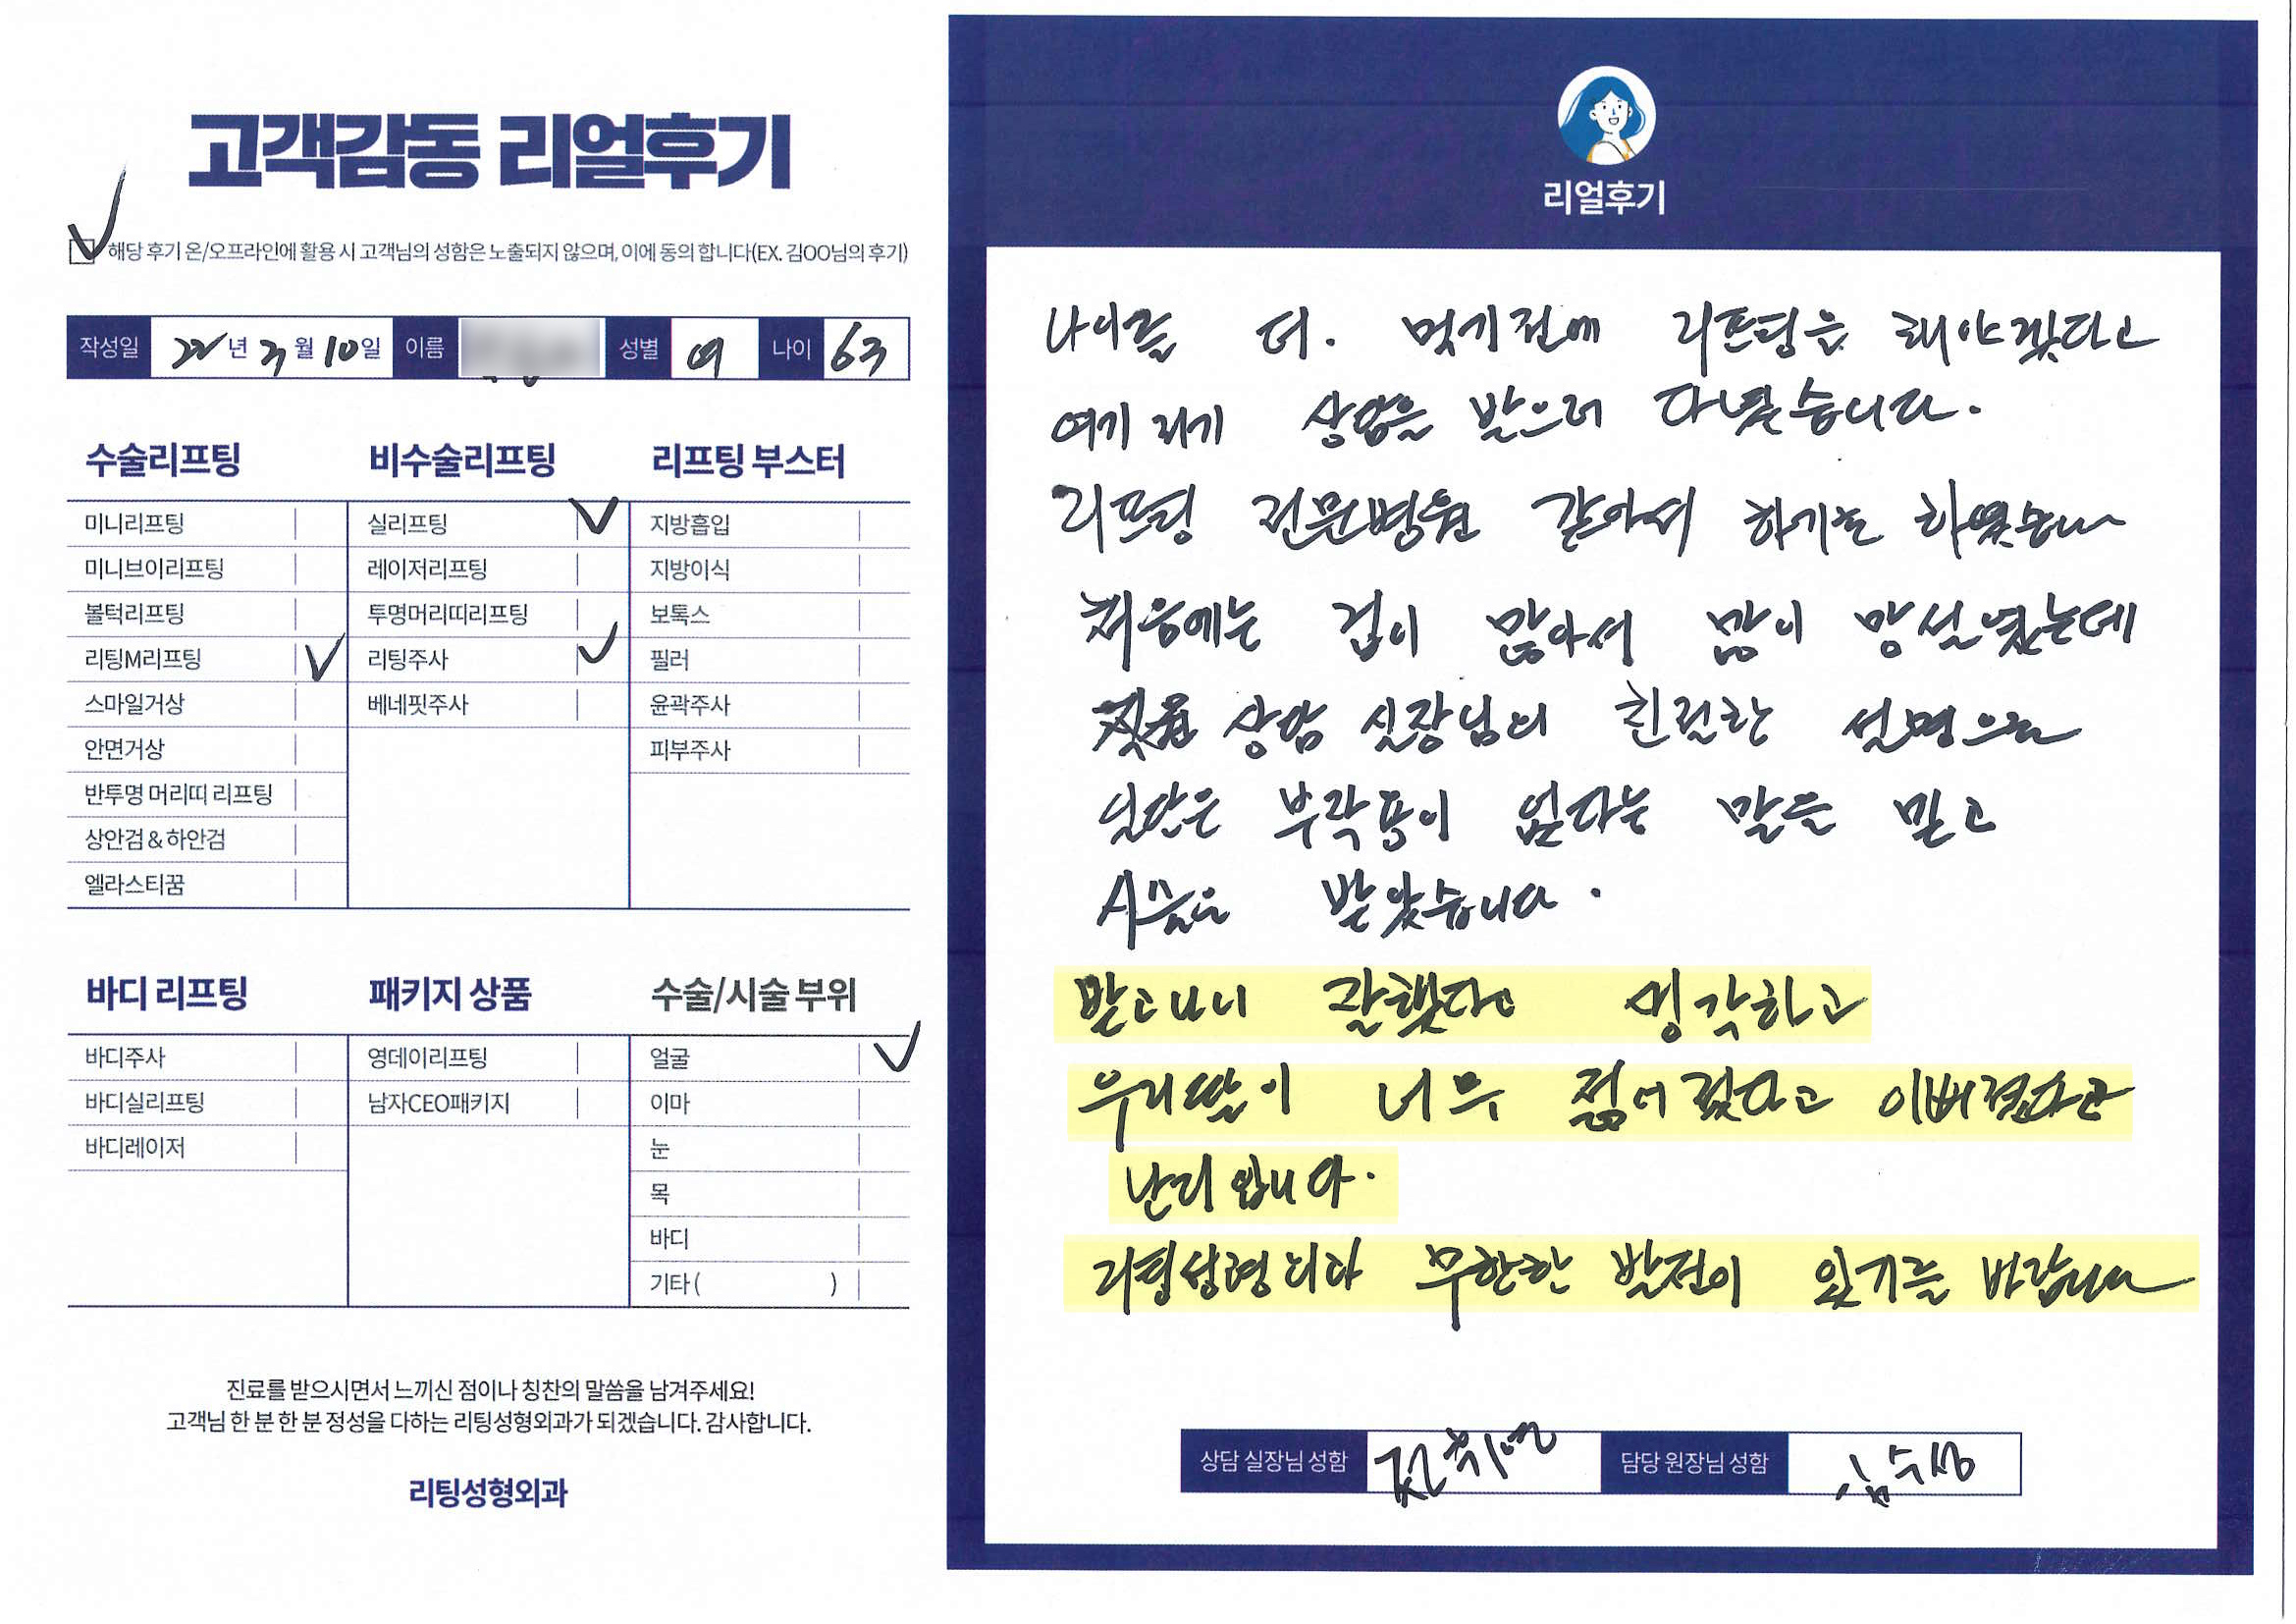 고객감동 리얼후기
해당 후기 온/오프라인에 활용 시 고객님의 성함은 노출되지 않으며, 이에 동의 합니다(EX. 김OO님의 후기)
작성일 22년 3월 10일 이름 성별 여 나이 63
수술리프팅
미니리프팅
미니브이리프팅
볼턱리프팅
리팅M리프팅
스마일거상
안면거상
반투명 머리띠 리프팅
상안검 & 하안검
엘라스티꿈
비수술리프팅
실리프팅
레이저리프팅
투명머리띠리프팅
리팅주사
베네핏주사
리프팅 부스터
지방흡입
지방이식
보톡스
필러
윤곽주사
피부주사
바디 리프팅
바디주사
바디실리프팅
바디레이저
패키지 상품
영데이리프팅
남자CEO패키지
수술/시술 부위
얼굴
이마
눈
목
바디
기타 ( )
진료를 받으시면서 느끼신 점이나 칭찬의 말씀을 남겨주세요!
고객님 한 분 한 분 정성을 다하는 리팅성형외과가 되겠습니다. 감사합니다.
리팅성형외과
리얼후기
나이를 더. 먹기전에 리프팅은 해야겠다고
여기 저기 상담을 받으러 다녔습니다.
리프팅 전문병원 같아서 하기로 하였습니다
처음에는 겁이 많아서 많이 망설였는데
상담 실장님의 친절한 설명으로
일단은 부작용이 없다는 말을 믿고
시술을 받았습니다.
받고나니 잘했다고 생각하고
우리딸이 너무 젊어졌다고 이뻐졌다고
난리 입니다.
무한한 발전이 있기를 바랍니다
상담 실장님 성함
담당 원장님 성함